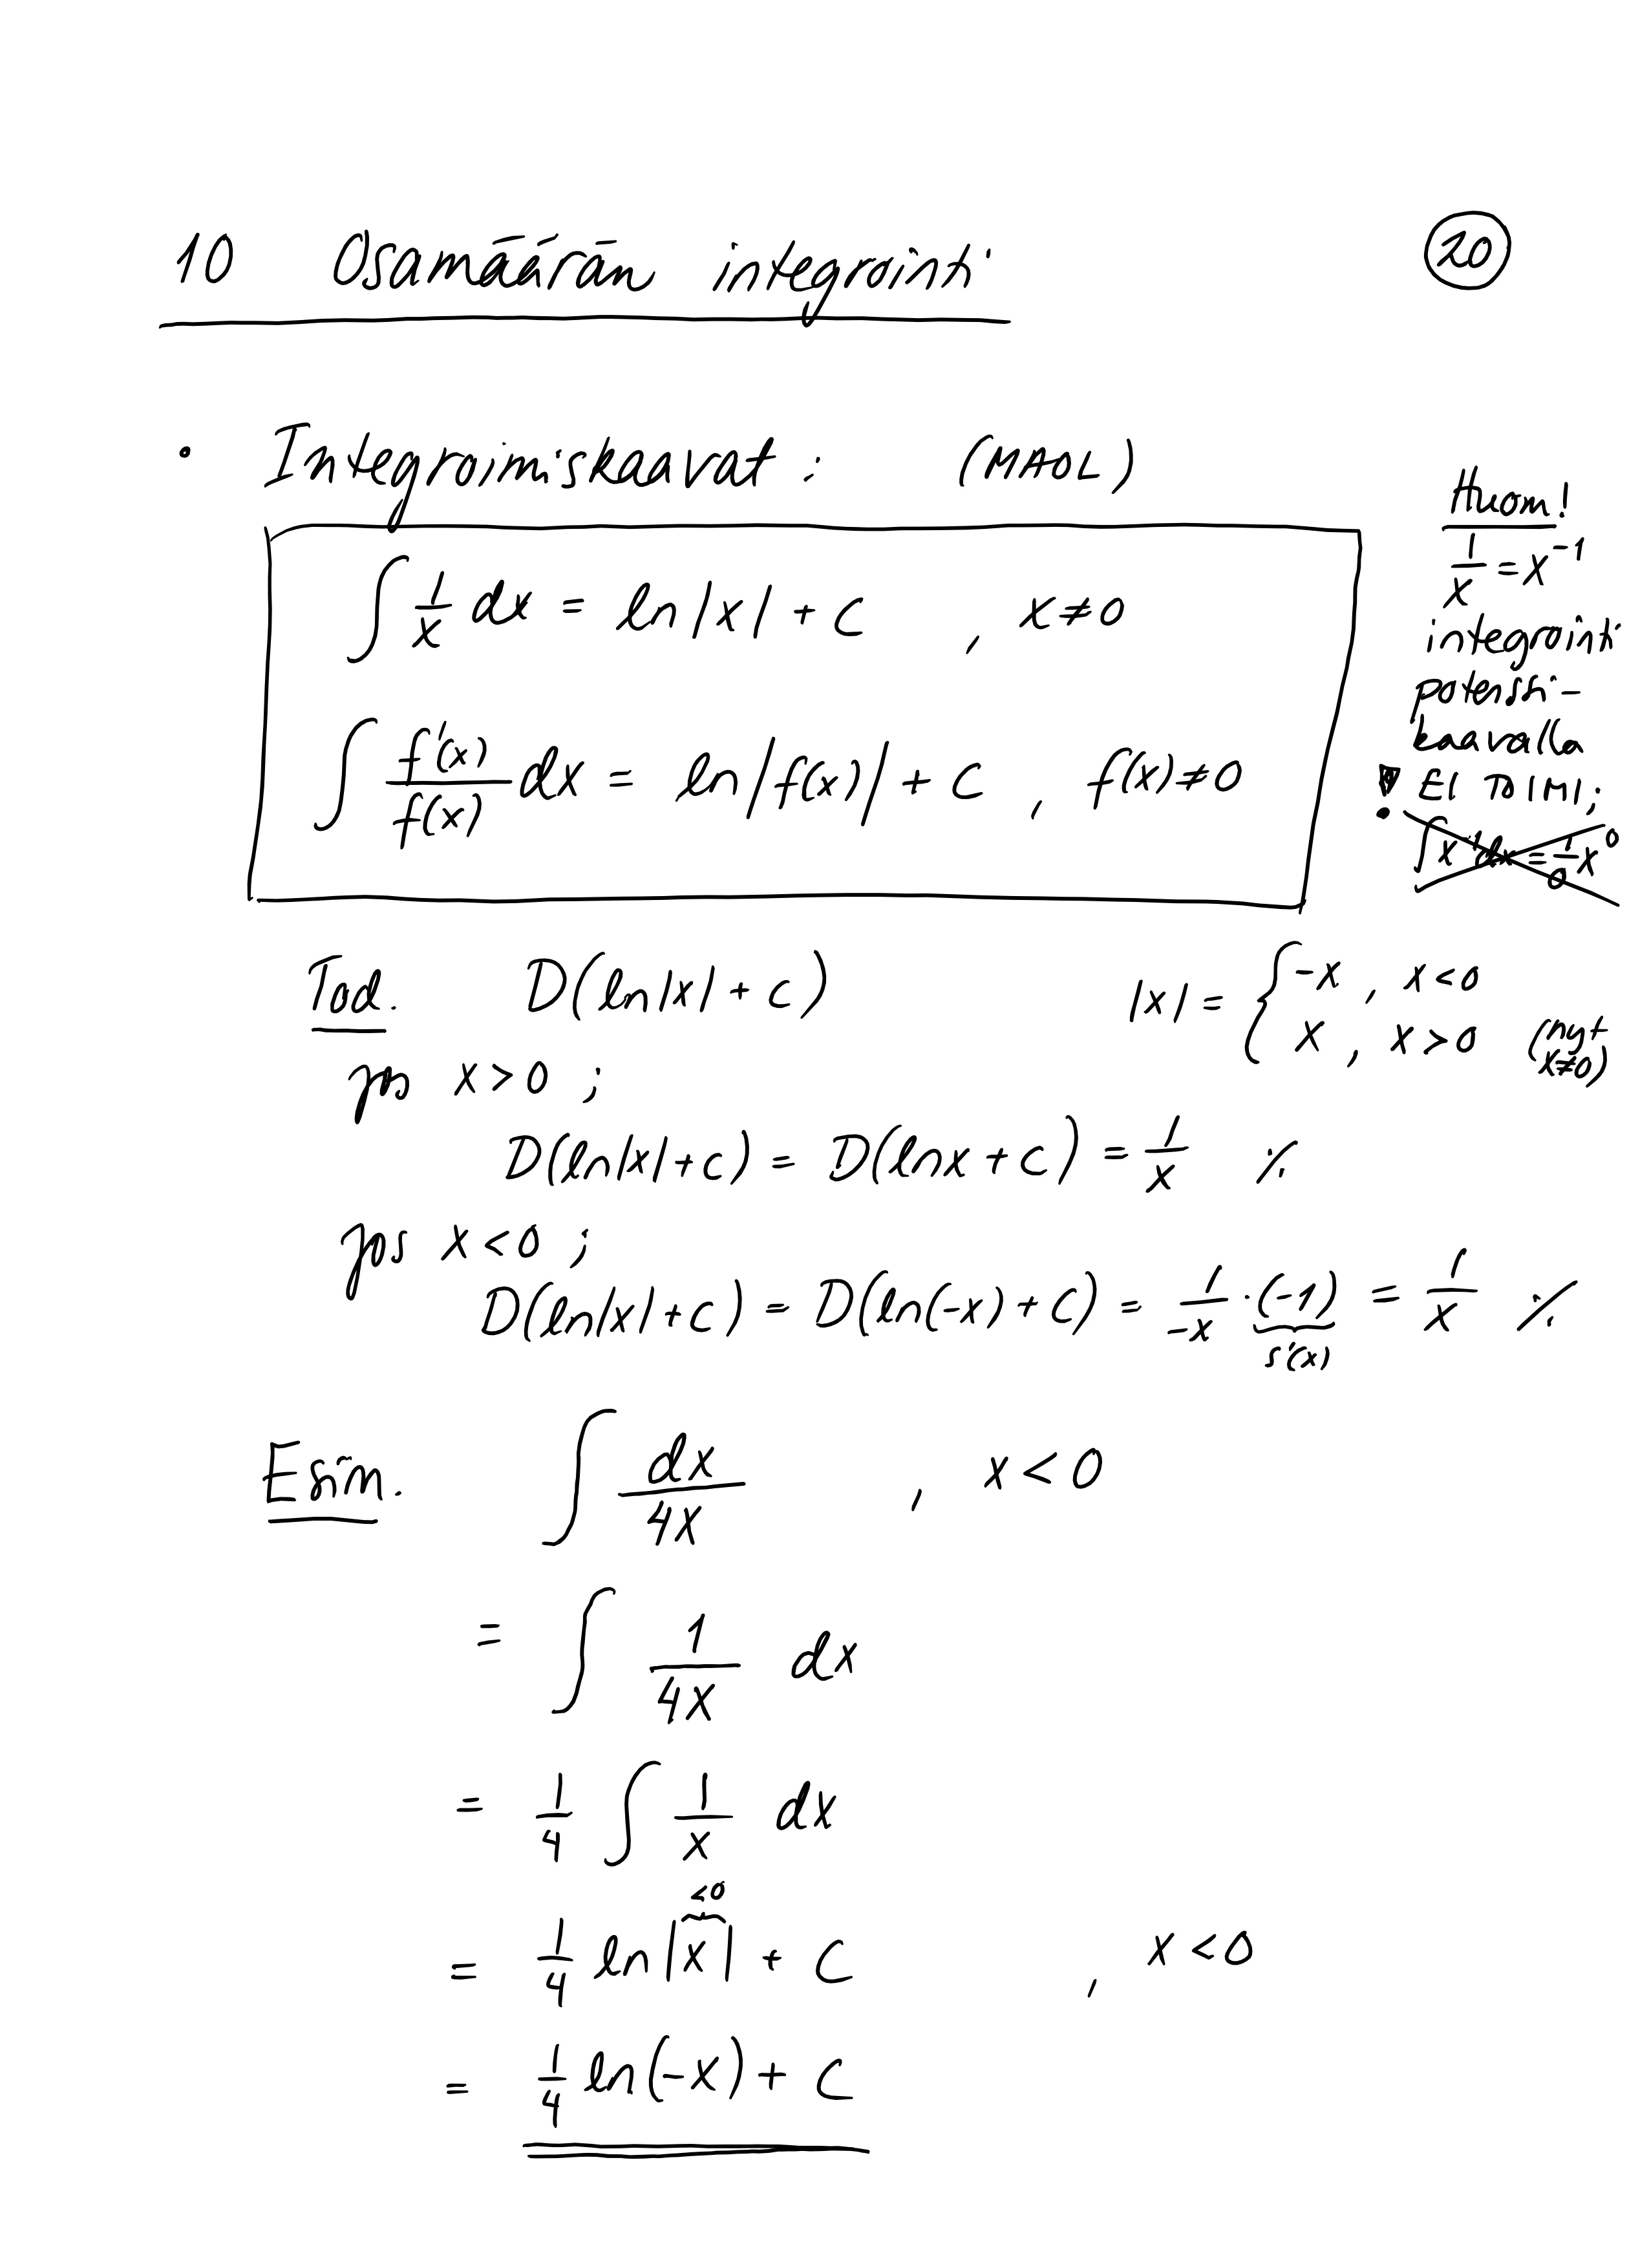 10 Osamäärän integrointi
20
• Integroimiskaavat : (MAOL)
∫ 1/x dx = ln|x| + C , x≠0
∫ f'(x)/f(x) dx = ln|f(x)| + C , f(x)≠0
Huom!
1/x = x⁻¹
integrointi
potenssi-
kaavalla
! EI TOIMI;
∫x⁻¹dx = 1/0 x⁰
Tod. D(ln|x| + C)
|x| = { -x , x<0
x , x>0 (nyt
x≠0)
jos x>0 ;
D(ln|x|+C) = D(lnx + C) = 1/x ⁒
jos x<0 ;
D(ln|x|+C) = D(ln(-x) + C) = 1/-x · (-1) = 1/x ⁒
s'(x)
Esim. ∫ dx/4x , x<0
= ∫ 1/4x dx
= 1/4 ∫ 1/x dx
<0
= 1/4 ln|x| + C , x<0
= 1/4 ln(-x) + C